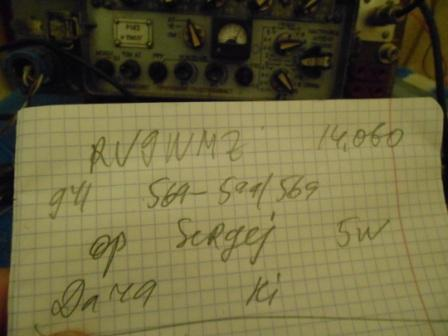 RV9WMZ 14,060
941 569-599/569
op Sergej 5W
Дача Ki